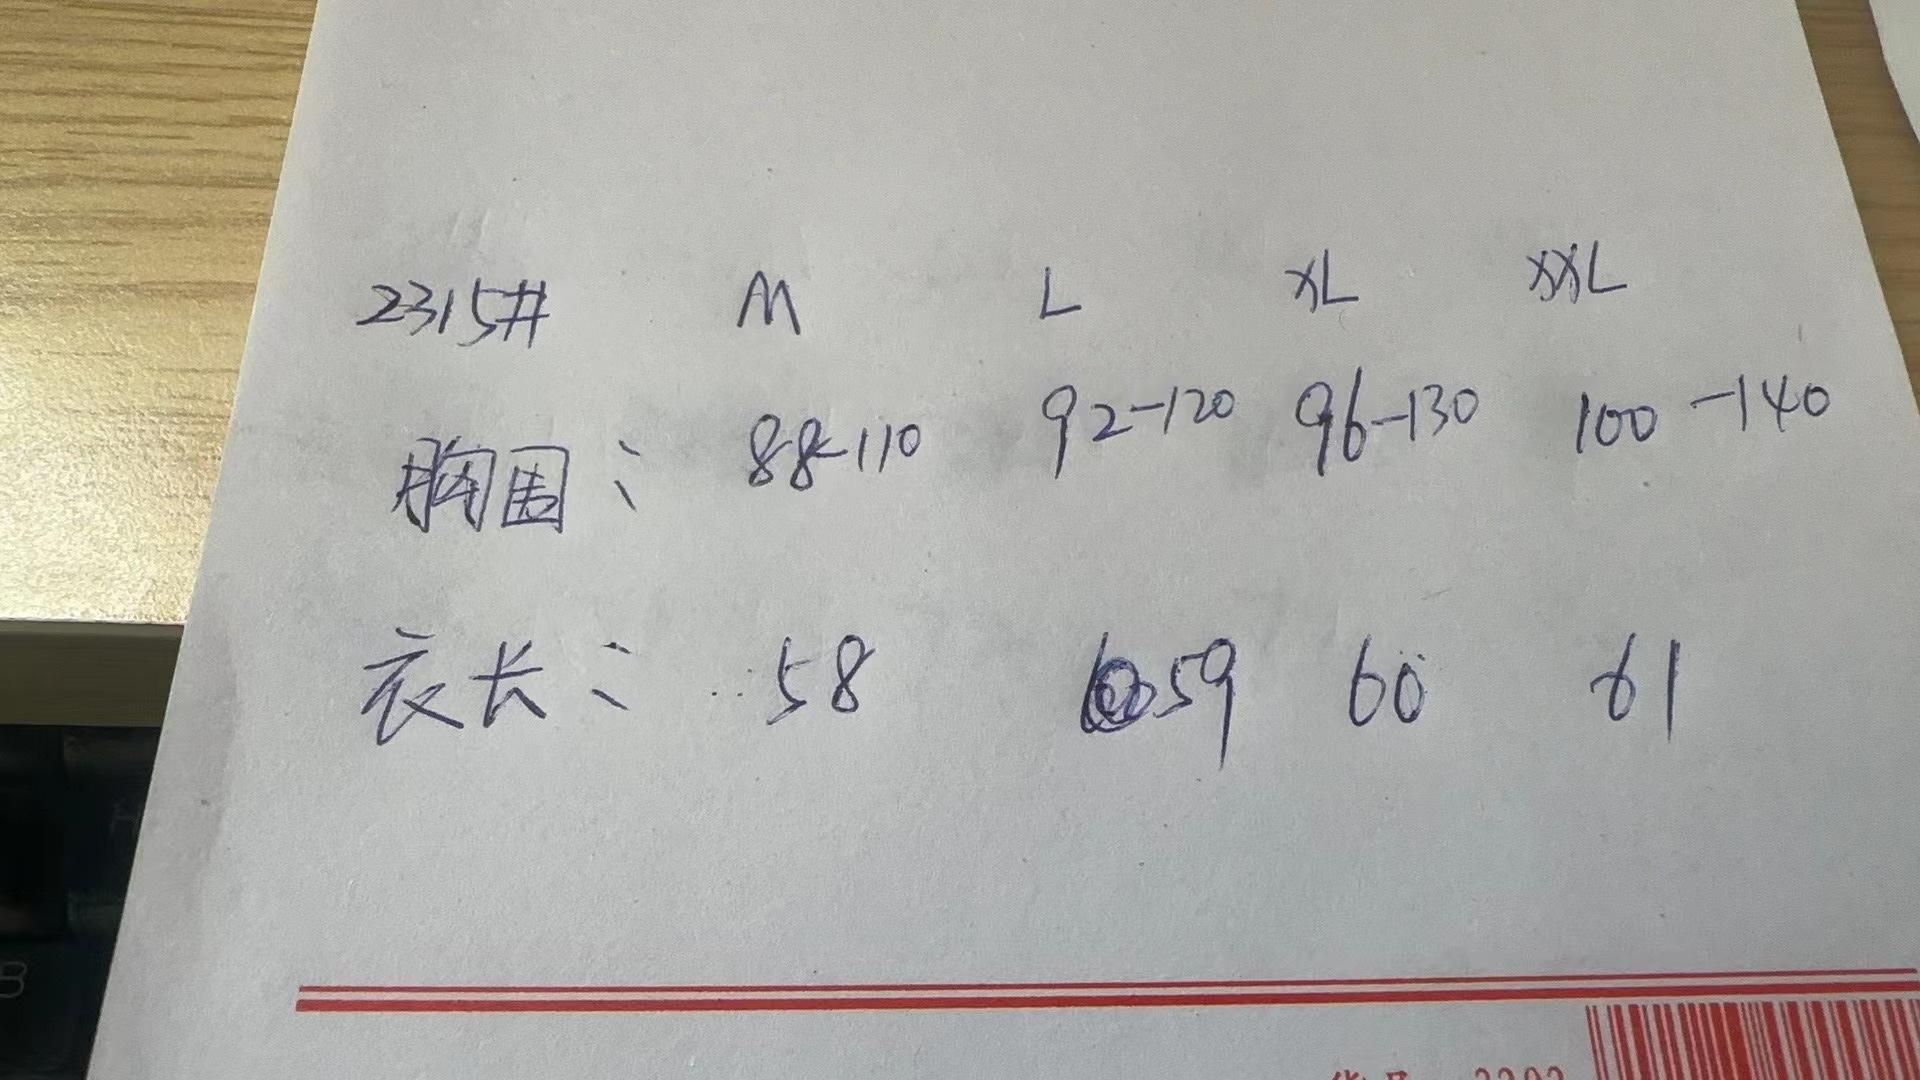 2315# M L XL XXL
胸围: 88-110 92-120 96-130 100-140
衣长: 58 59 60 61